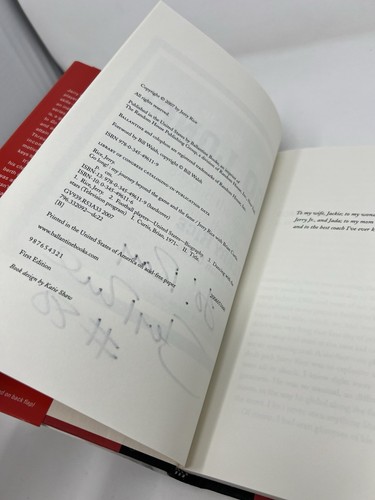 Copyright © 2007 by Jerry Rice
All rights reserved.
Published in the United States by Ballantine Books, an imprint of
The Random House Publishing Group, a division of Random House
Ballantine and colophon are registered trademarks of Random House
Foreword by Bill Walsh, copyright © Bill Walsh
ISBN 978-0-345-49611-9
LIBRARY OF CONGRESS CATALOGING-IN-PUBLICATION DATA
Rice, Jerry.
Go long! : my journey beyond the game and the fame / Jerry Rice with Brian Curtis.
p. cm.
ISBN-13: 978-0-345-49611-9 (hardcover)
ISBN-10: 0-345-49611-9
1. Rice, Jerry. 2. Football players—United States—Biography. 3. Dancing with the
stars (Television program) I. Curtis, Brian, 1971– II. Title.
GV939.R53A33 2007
796.332092—dc22
[B]
Printed in the United States of America on acid-free paper
www.ballantinebooks.com
9 8 7 6 5 4 3 2 1
First Edition
Book design by Katie Shaw
#80
To my wife, Jackie; to my
Jerry Jr., and Jada; to my mom
and to the best coach I've ever
d on back flap)